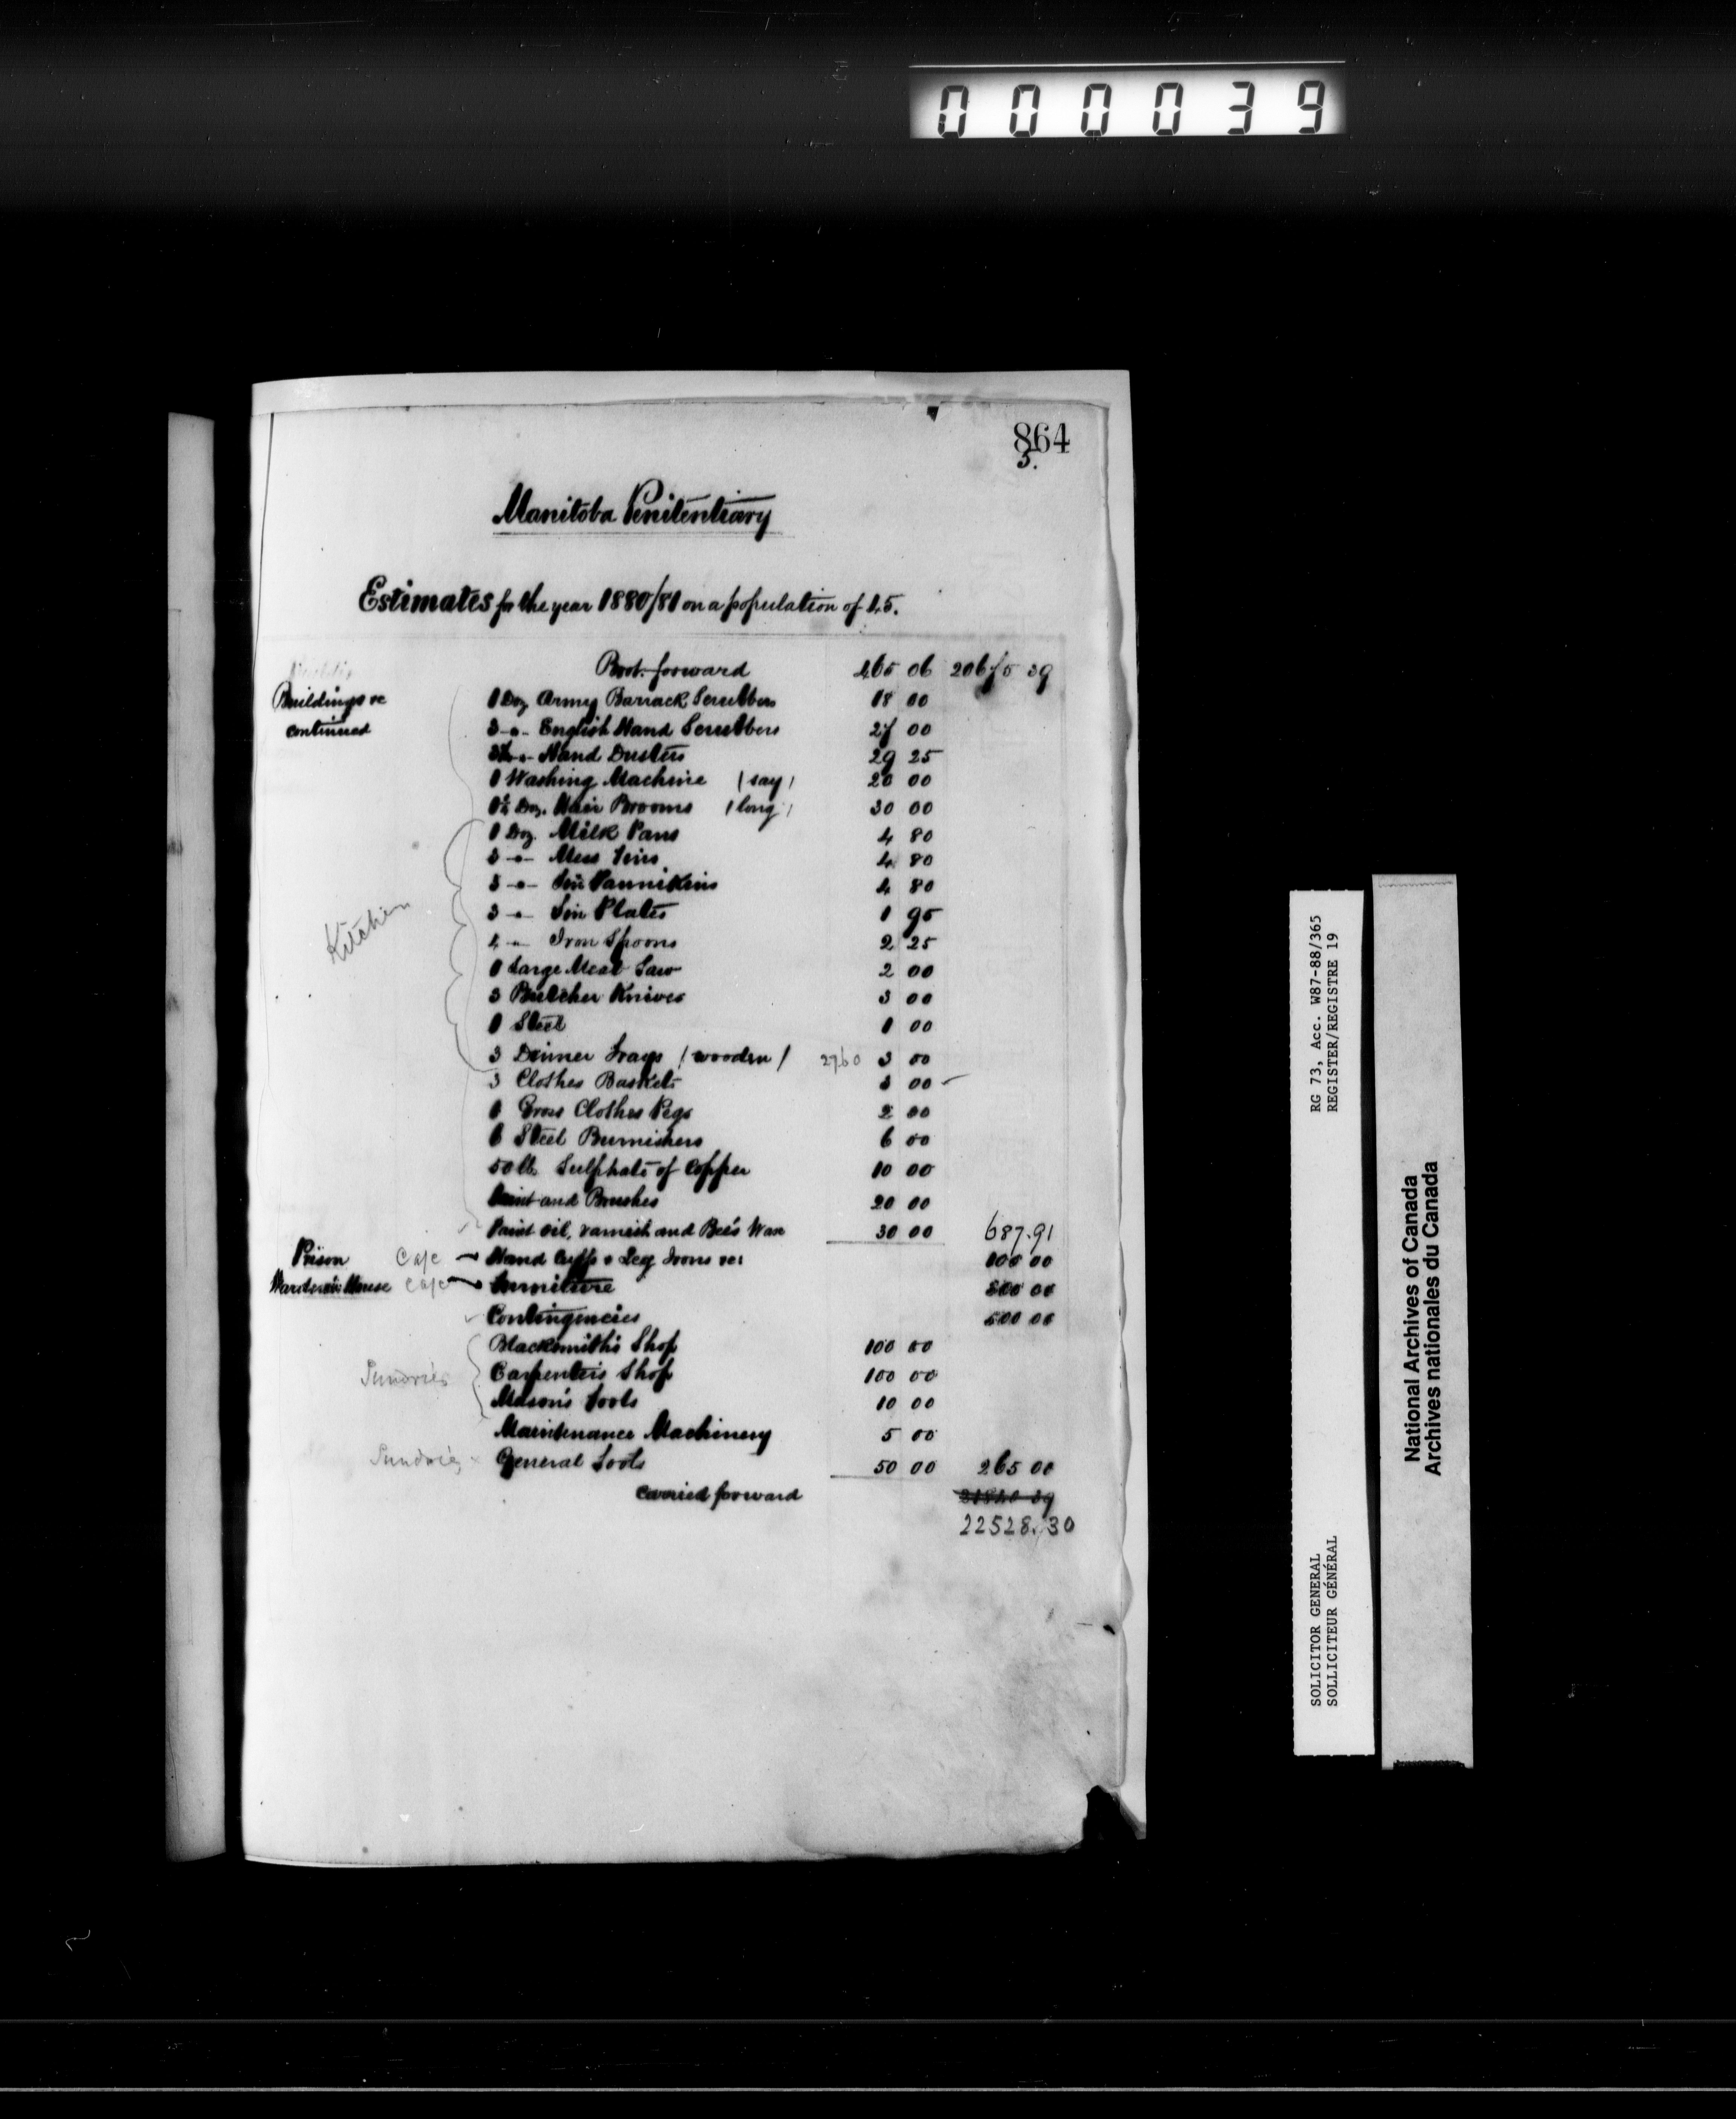 000039
864
5.
Manitoba Penitentiary
Estimates for the year 1880/81 on a population of 45.
Brot. forward 465 06 20675 39
Buildings &c 1 Doz Army Barrack Scrubbers 18 00
continued 3 -"- English Hand Scrubbers 27 00
-"- Hand Dusters 29 25
1 Washing Machine (say) 20 00
1½ Doz. Hair Brooms (long) 30 00
1 Doz. Milk Pans 4 80
3 -"- Mess Tins 4 80
3 -"- Tin Pannikins 4 80
Kitchen
3 -"- Tin Plates 1 95
4 -"- Iron Spoons 2 25
1 Large Meat Saw 2 00
3 Butcher Knives 3 00
1 Steel 1 00
3 Dinner Trays (wooden) 27.60 3 00
3 Clothes Baskets 3 00
1 Gross Clothes Pegs 2 00
6 Steel Burnishers 6 00
50 lb. Sulphate of Copper 10 00
Paint and Brushes 20 00
Paint oil, varnish and Bee's Wax 30 00 687.91
Prison Hand Cuffs & Leg Irons &c: 100 00
Warden's House Furniture 300 00
Contingencies 500 00
Blacksmith's Shop 100 00
Sundries Carpenter's Shop 100 00
Mason's Tools 10 00
Maintenance Machinery 5 00
Sundries General Tools 50 00 265 00
Carried forward 21840 39
22528.30
RG 73, Acc. W87-88/365
REGISTER/REGISTRE 19
SOLICITOR GENERAL
SOLLICITEUR GÉNÉRAL
National Archives of Canada
Archives nationales du Canada